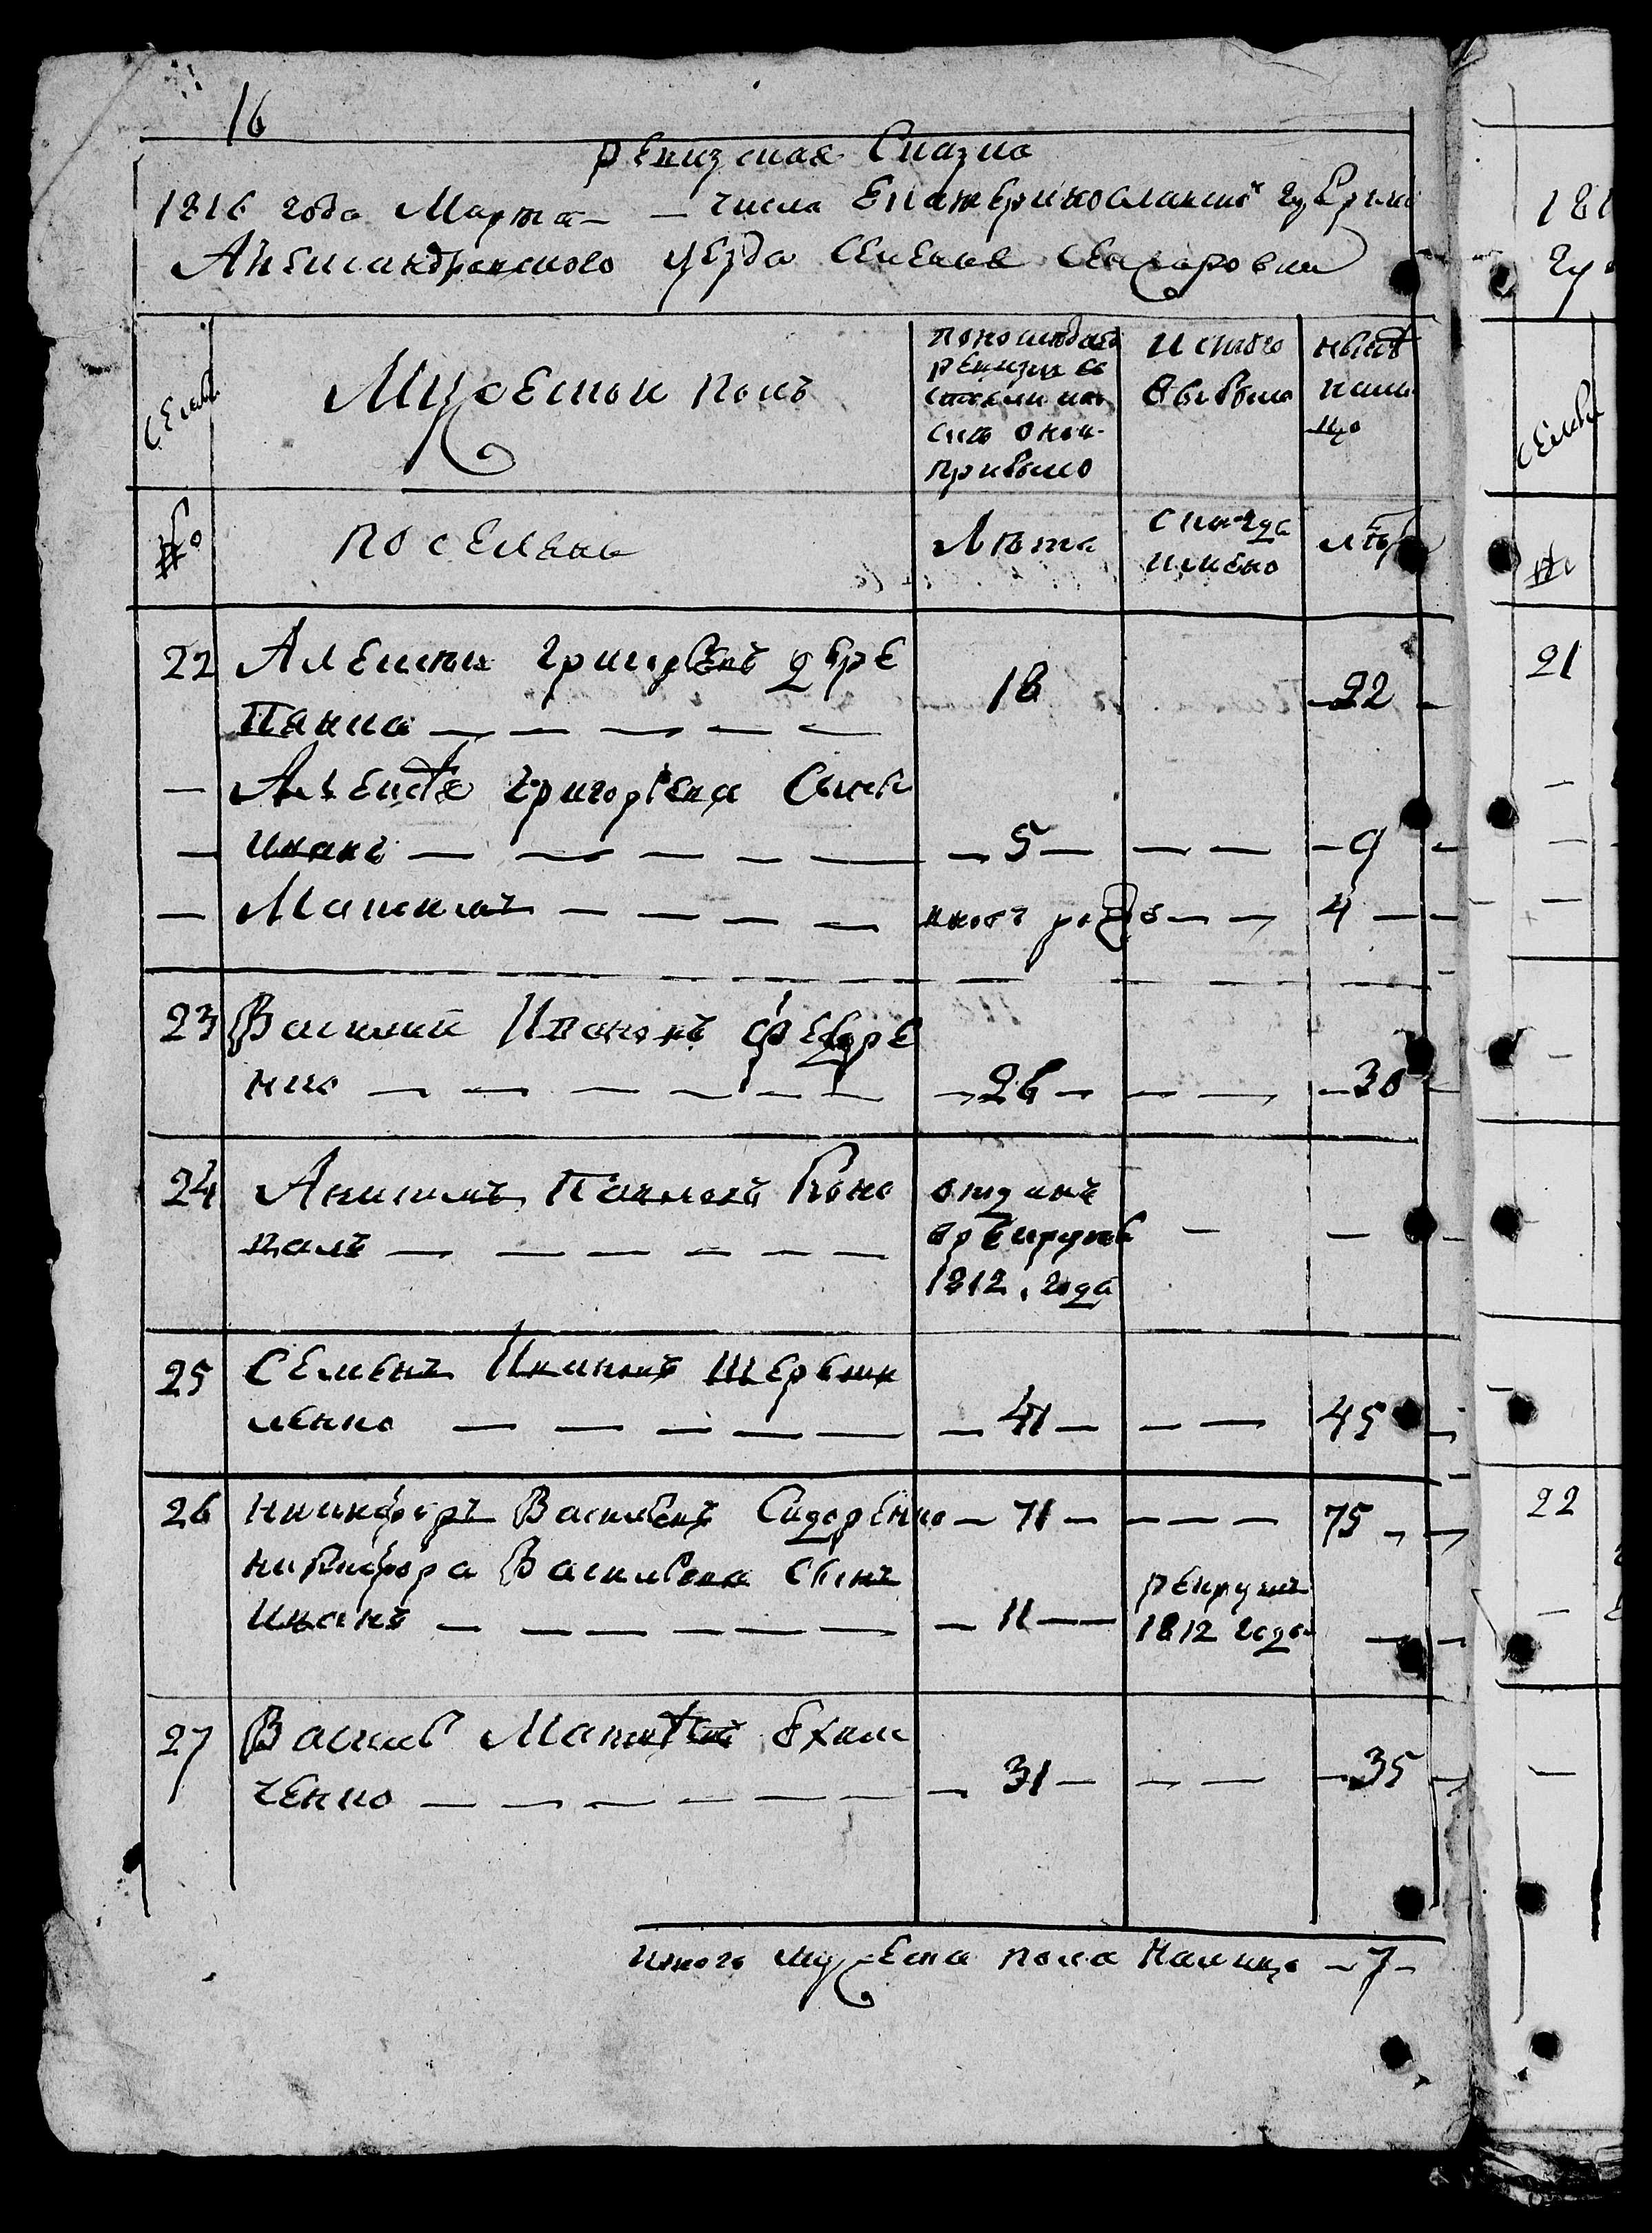 16
ревизская Сказка
1816 года Марта — числа Екатеринославской губернии
Александровского уезда Селения
Семьи
Мужеской полъ
по последней ревизии состояло и после оной прибыло
Изъ того выбыло
ныне на лицо
№
поселяне
Лета
с коего времяни
лета
22 Алексей Григорьевъ Дере
Панка — 18 — 22
— Алексея Григорьева Сынъ
— Иванъ — 5 — 9
— Максимъ — 4
23 Василий Ивановъ Федоре
нко — 26 — 30
24 Анисимъ Павловъ Коно
валъ — отданъ в рекруты 1812. года —
25 Семенъ Ивановъ Щербин
ленко — 41 — 45
26 Никифоръ Васильевъ Сидоренко — 71 — 75
Никифора Васильева Сынъ
Иванъ — 11 — рекрутъ 1812 года —
27 Василий Матвеевъ
ченко — 31 — 35
Итого мужеска пола Налицо — 7 —
181
Семьи
№
21
22